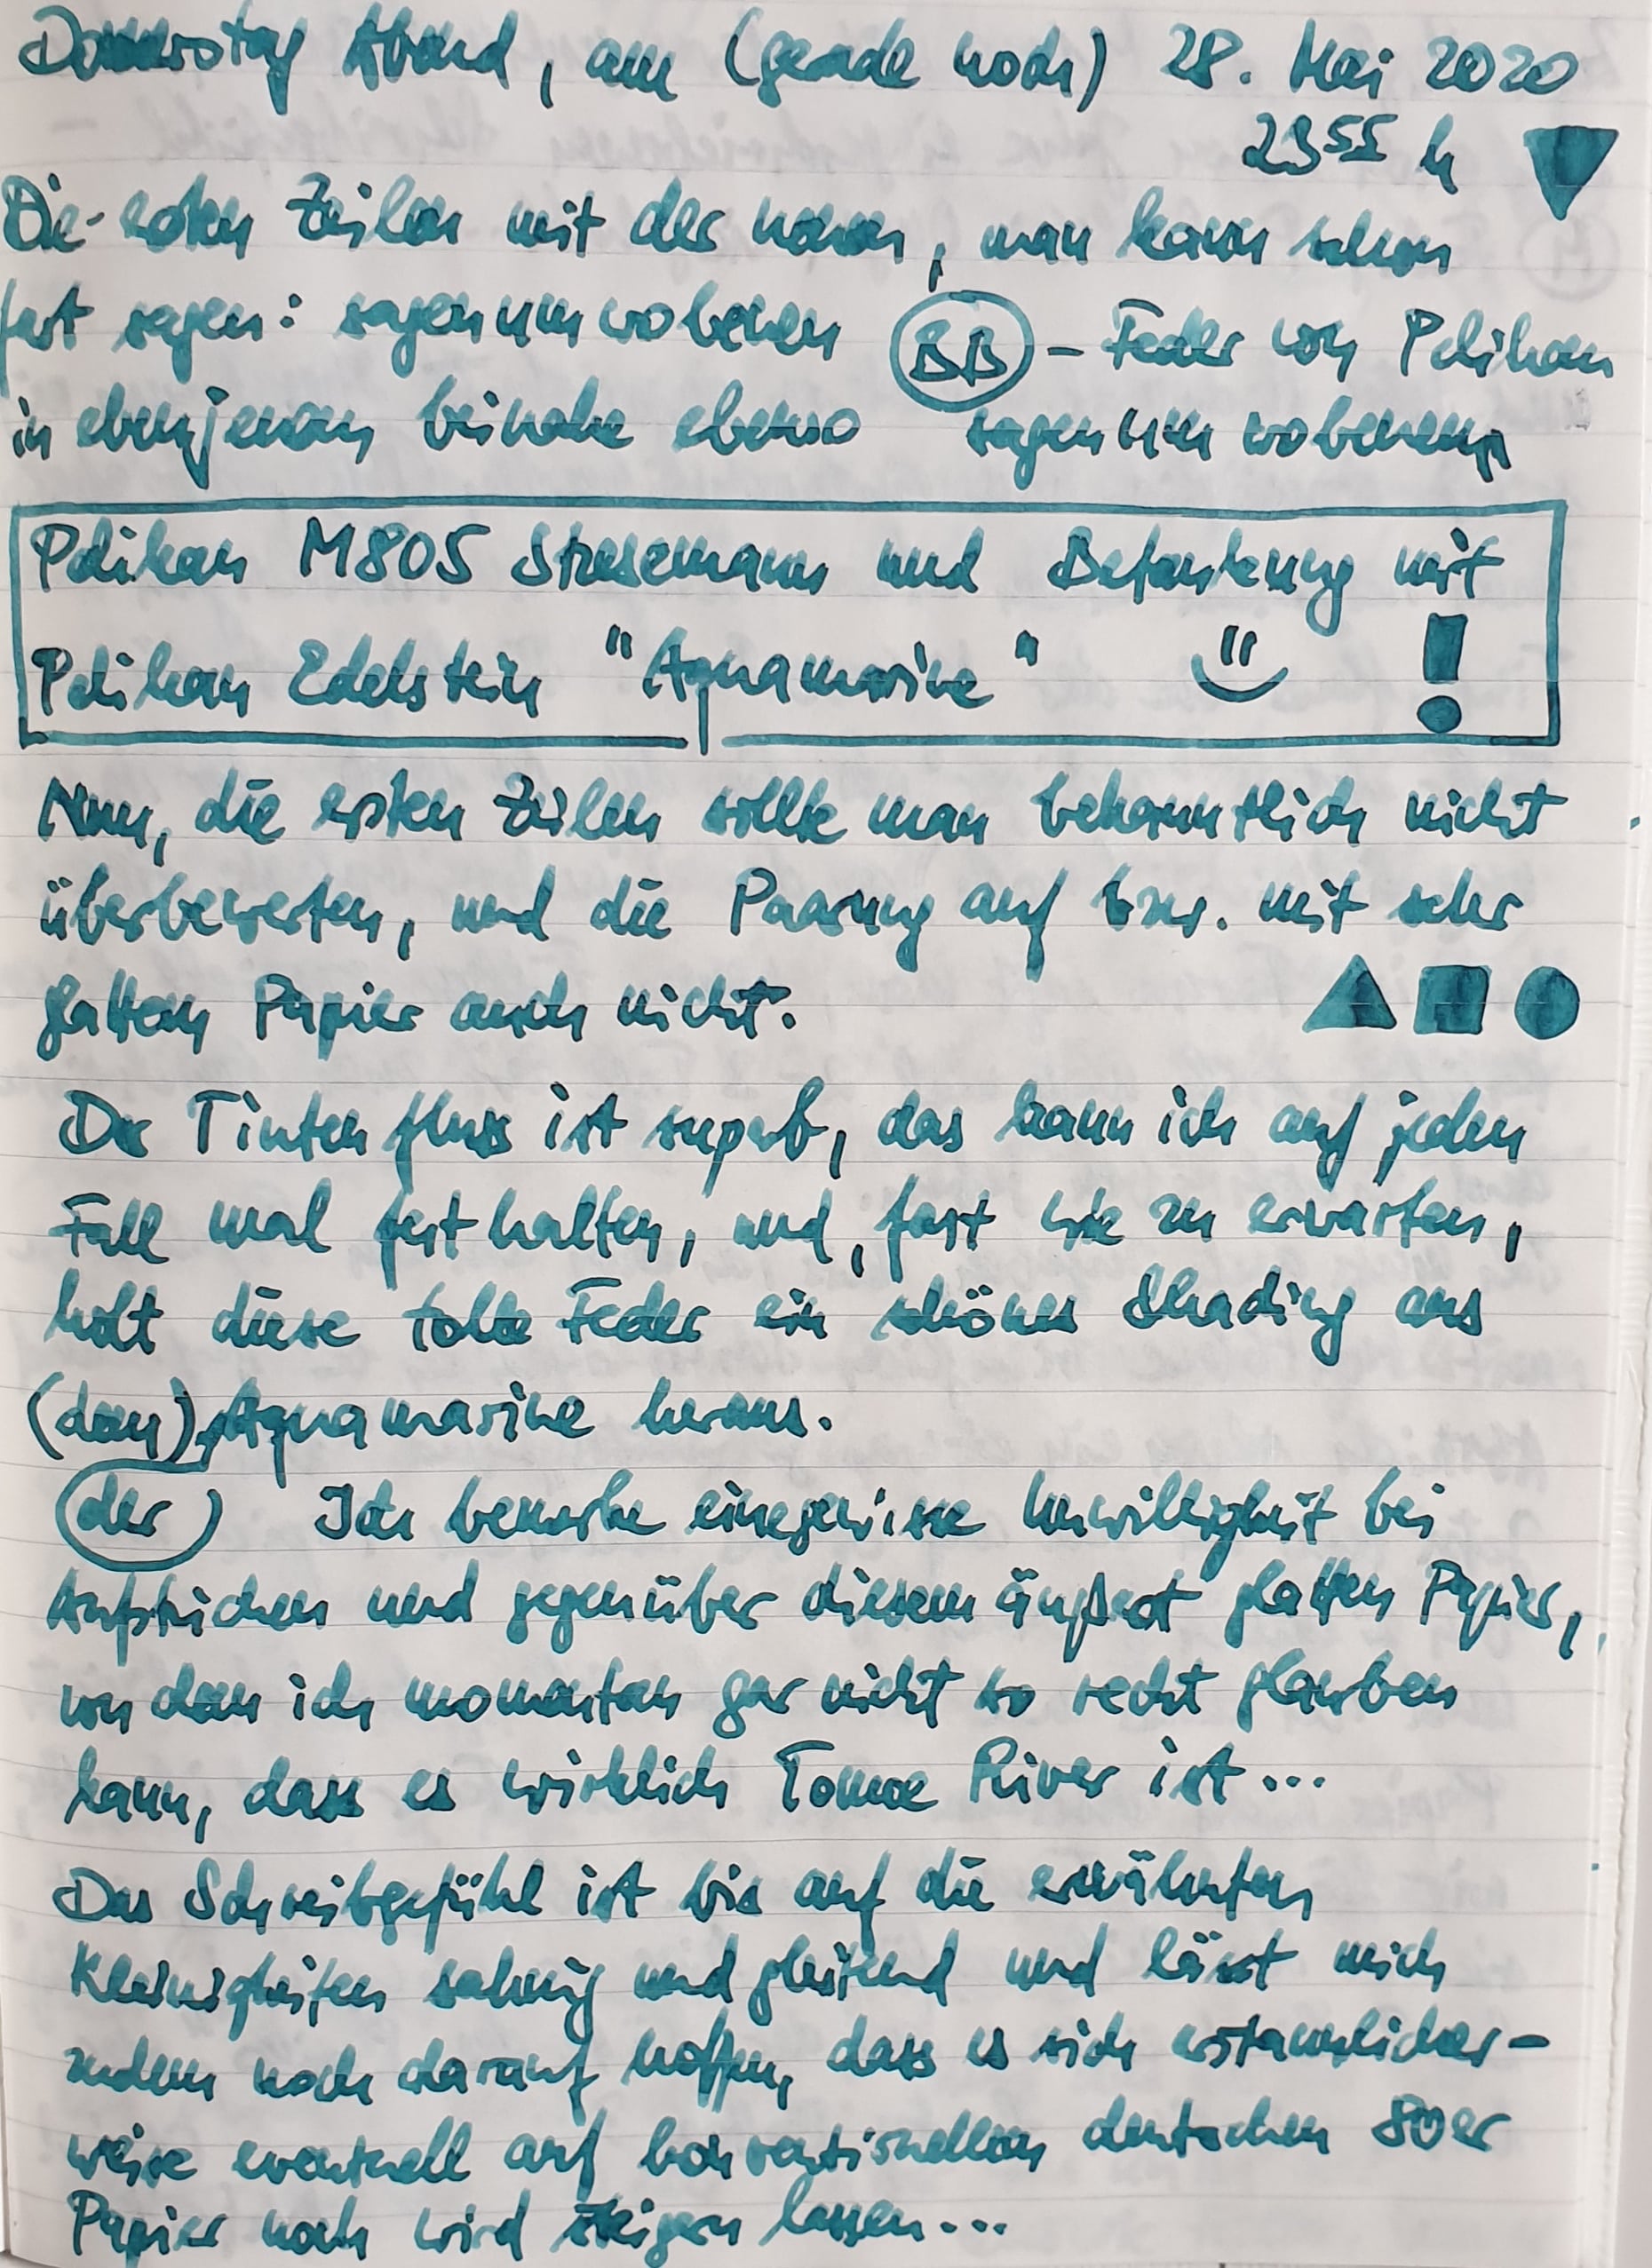 Donnerstag Abend, am (gerade noch) 28. Mai 2020
23⁵⁵ h
Die ersten Zeilen mit der neuen, man kann schon
fast sagen: sagenumwobenen BB - Feder von Pelikan
in ebenjenem beinahe ebenso sagenumwobenen
Pelikan M805 Stresemann und Betankung mit
Pelikan Edelstein "Aquamarine" !
Nun, die ersten Zeilen sollte man bekanntlich nicht
überbewerten, und die Paarung auf bzw. mit sehr
glattem Papier auch nicht.
Der Tintenfluss ist superb, das kann ich auf jeden
Fall mal festhalten, und, fast wie zu erwarten,
holt diese tolle Feder ein schönes Shading aus
(dem) Aquamarine heraus.
(der) Ich bemerke eine gewisse Unwilligkeit bei
Aufstrichen und gegenüber diesem äußerst glatten Papier,
von dem ich momentan gar nicht so recht glauben
kann, dass es wirklich Tomoe River ist...
Das Schreibgefühl ist bis auf die erwähnten
Kleinigkeiten sahnig und gleitend und lässt mich
zudem noch darauf hoffen, dass es sich erstaunlicher-
weise eventuell auf konventionellem deutschen 80er
Papier noch wird steigern lassen...